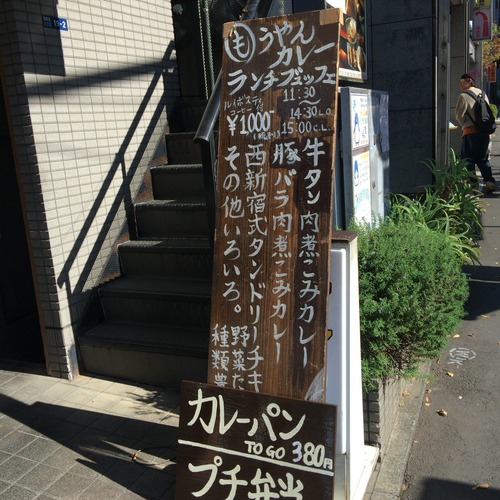 も うやん
カレー
ランチブッフェ
11:30
〜
14:30 L.O
15:00 C.L.
ルイボスティ
コーヒー付
¥1,000
牛タン肉煮こみカレー
豚バラ肉煮こみカレー
西新宿式タンドリーチキ
その他いろいろ。
野菜た
種類豊
カレーパン
TO GO 380円
プチ弁当